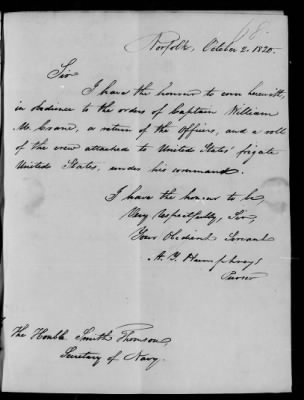 68.
Norfolk, October 2. 1820.
Sir
I have the honour to herewith,
in obedience to the orders of Captain William
M. Crane, a return of the Officers, and a roll
of the crew attached to United States' frigate
United States, under his command.
I have the honour to be
Very Respectfully, Sir
Your Obedient Servant
A. Y. Humphreys
Purser
The Honble Smith Thomson,
Secretary of Navy.